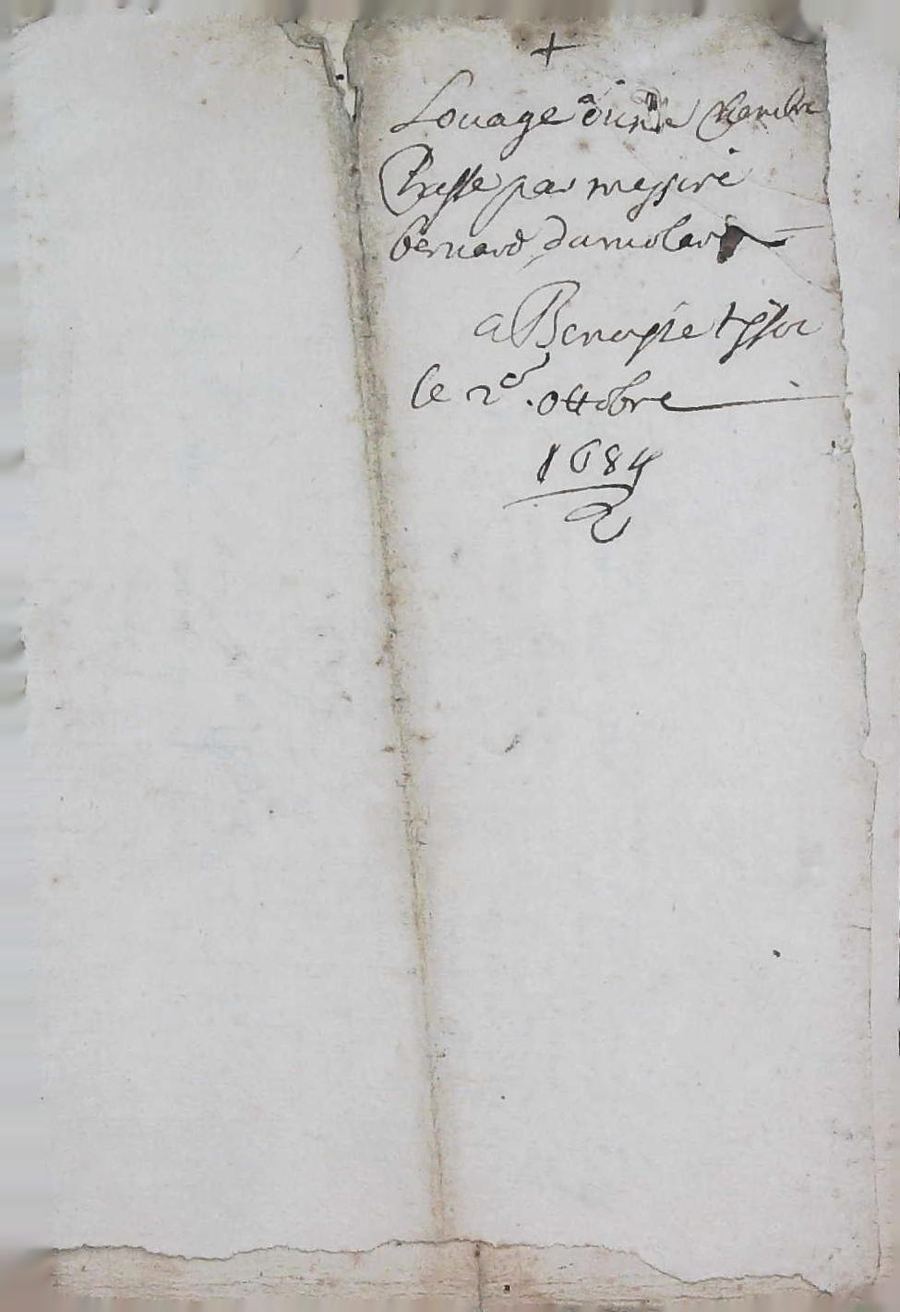 +
Louage d'une chambre
Basse par messire
bernard dumolar
a Benoiste tissot
le 2e ottobre
1684